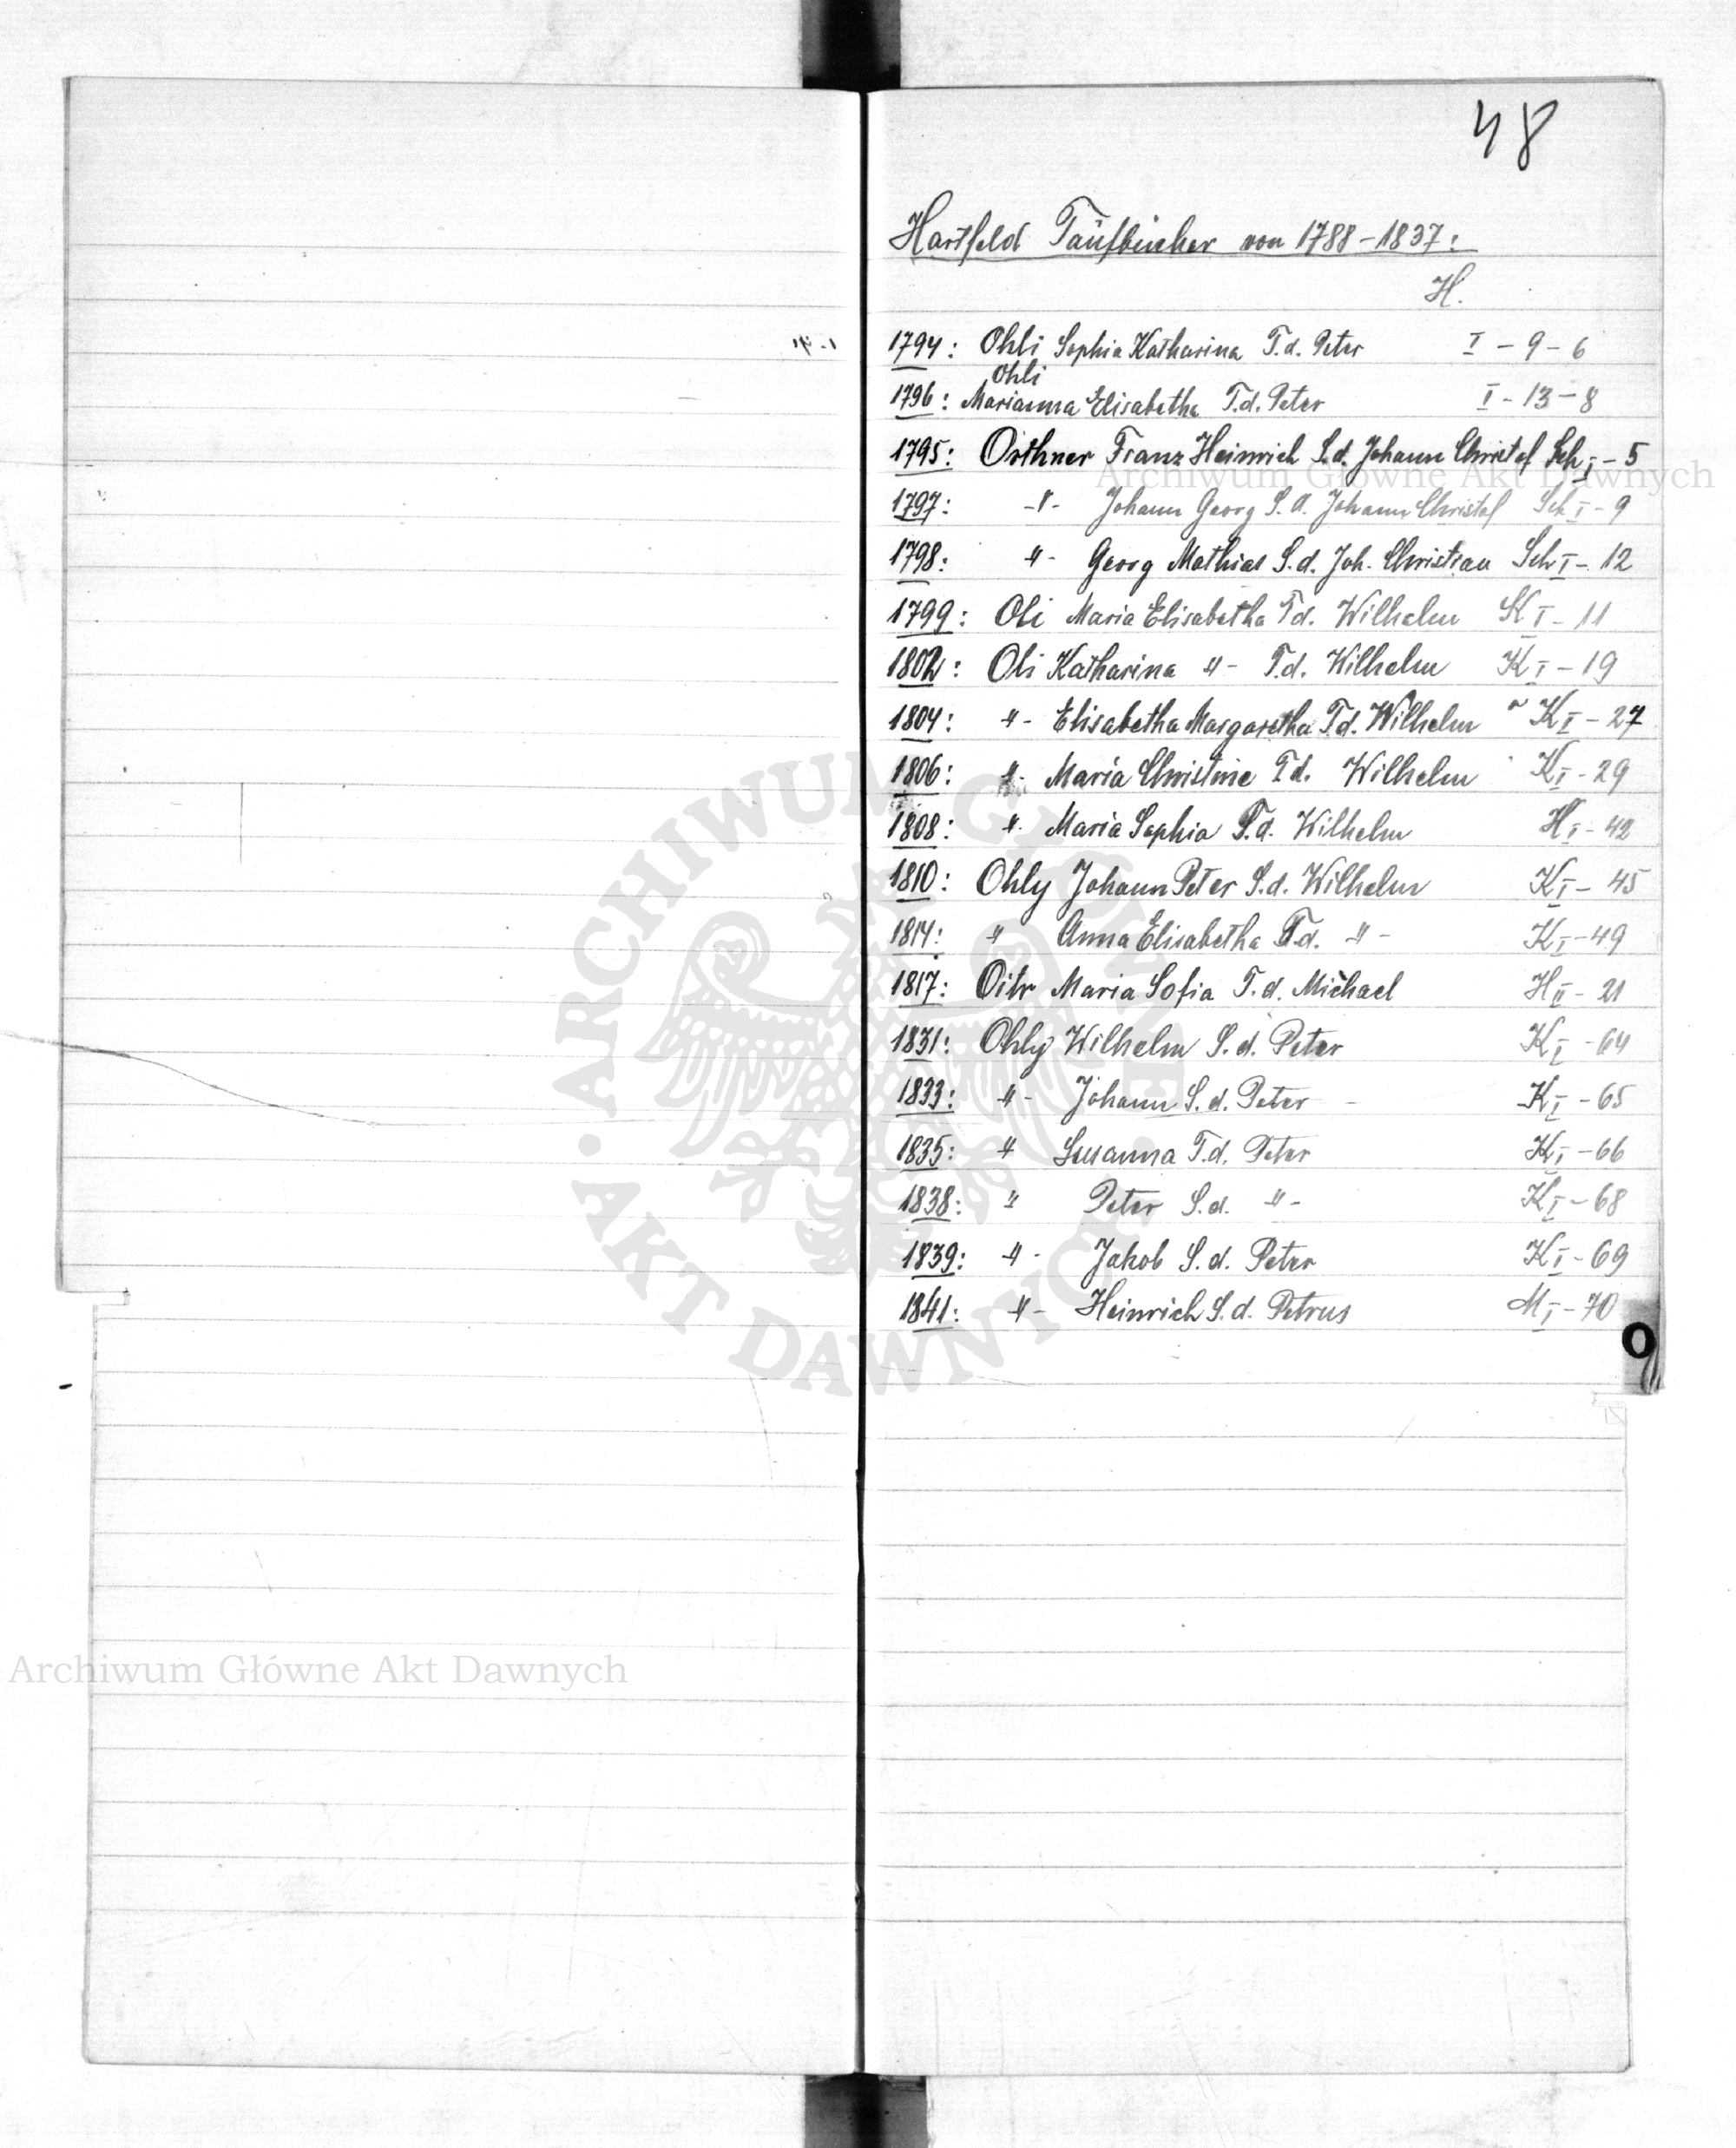 48
Hartfeld Taufbücher von 1788-1837:
H.
1794: Ohli Sophia Katharina T.d. Peter I - 9 - 6
Ohli
1796: Marianna Elisabetha T.d. Peter I - 13 - 8
1795: Orthner Franz Heinrich S.d. Johann Christof Sch I - 5
1797: -"- Johann Georg S.d. Johann Christof Sch I - 9
1798: "- Georg Mathias S.d. Joh. Christian Sch I - 12
1799: Oli Maria Elisabetha T.d. Wilhelm K I - 11
1802: Oli Katharina "- T.d. Wilhelm K I - 19
1804: "- Elisabetha Margaretha T.d. Wilhelm K I - 27
1806: "- Maria Christine T.d. Wilhelm K I - 29
1808: " Maria Sophia T.d. Wilhelm H I - 42
1810: Ohly Johann Peter S.d. Wilhelm K I - 45
1814: " Anna Elisabetha T.d. "- K I - 49
1817: Maria Sofia T.d. Michael H II - 21
1831: Ohly Wilhelm S.d. Peter K I - 64
1833: "- Johann S.d. Peter K I - 65
1835: " Susanna T.d. Peter K I - 66
1838: " Peter S.d. "- K I - 68
1839: "- Jakob S.d. Peter K I - 69
1841: "- Heinrich S.d. Petrus M I - 70
Archiwum Główne Akt Dawnych
ARCHIWUM GŁÓWNE
AKT DAWNYCH
Archiwum Główne Akt Dawnych